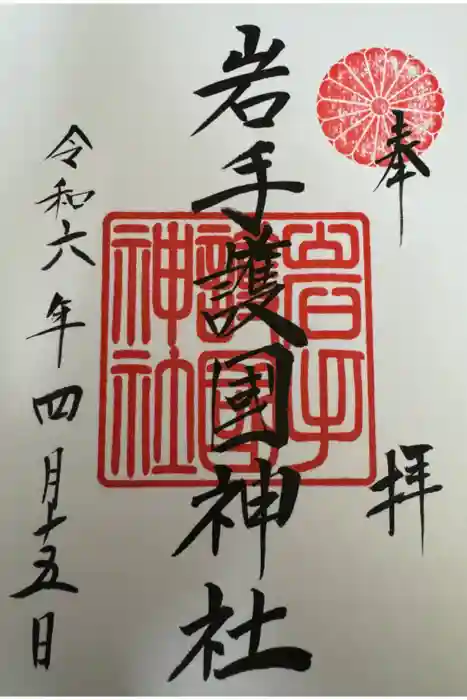 奉拝
岩手護国神社
岩手
護国
神社
令和六年四月十五日